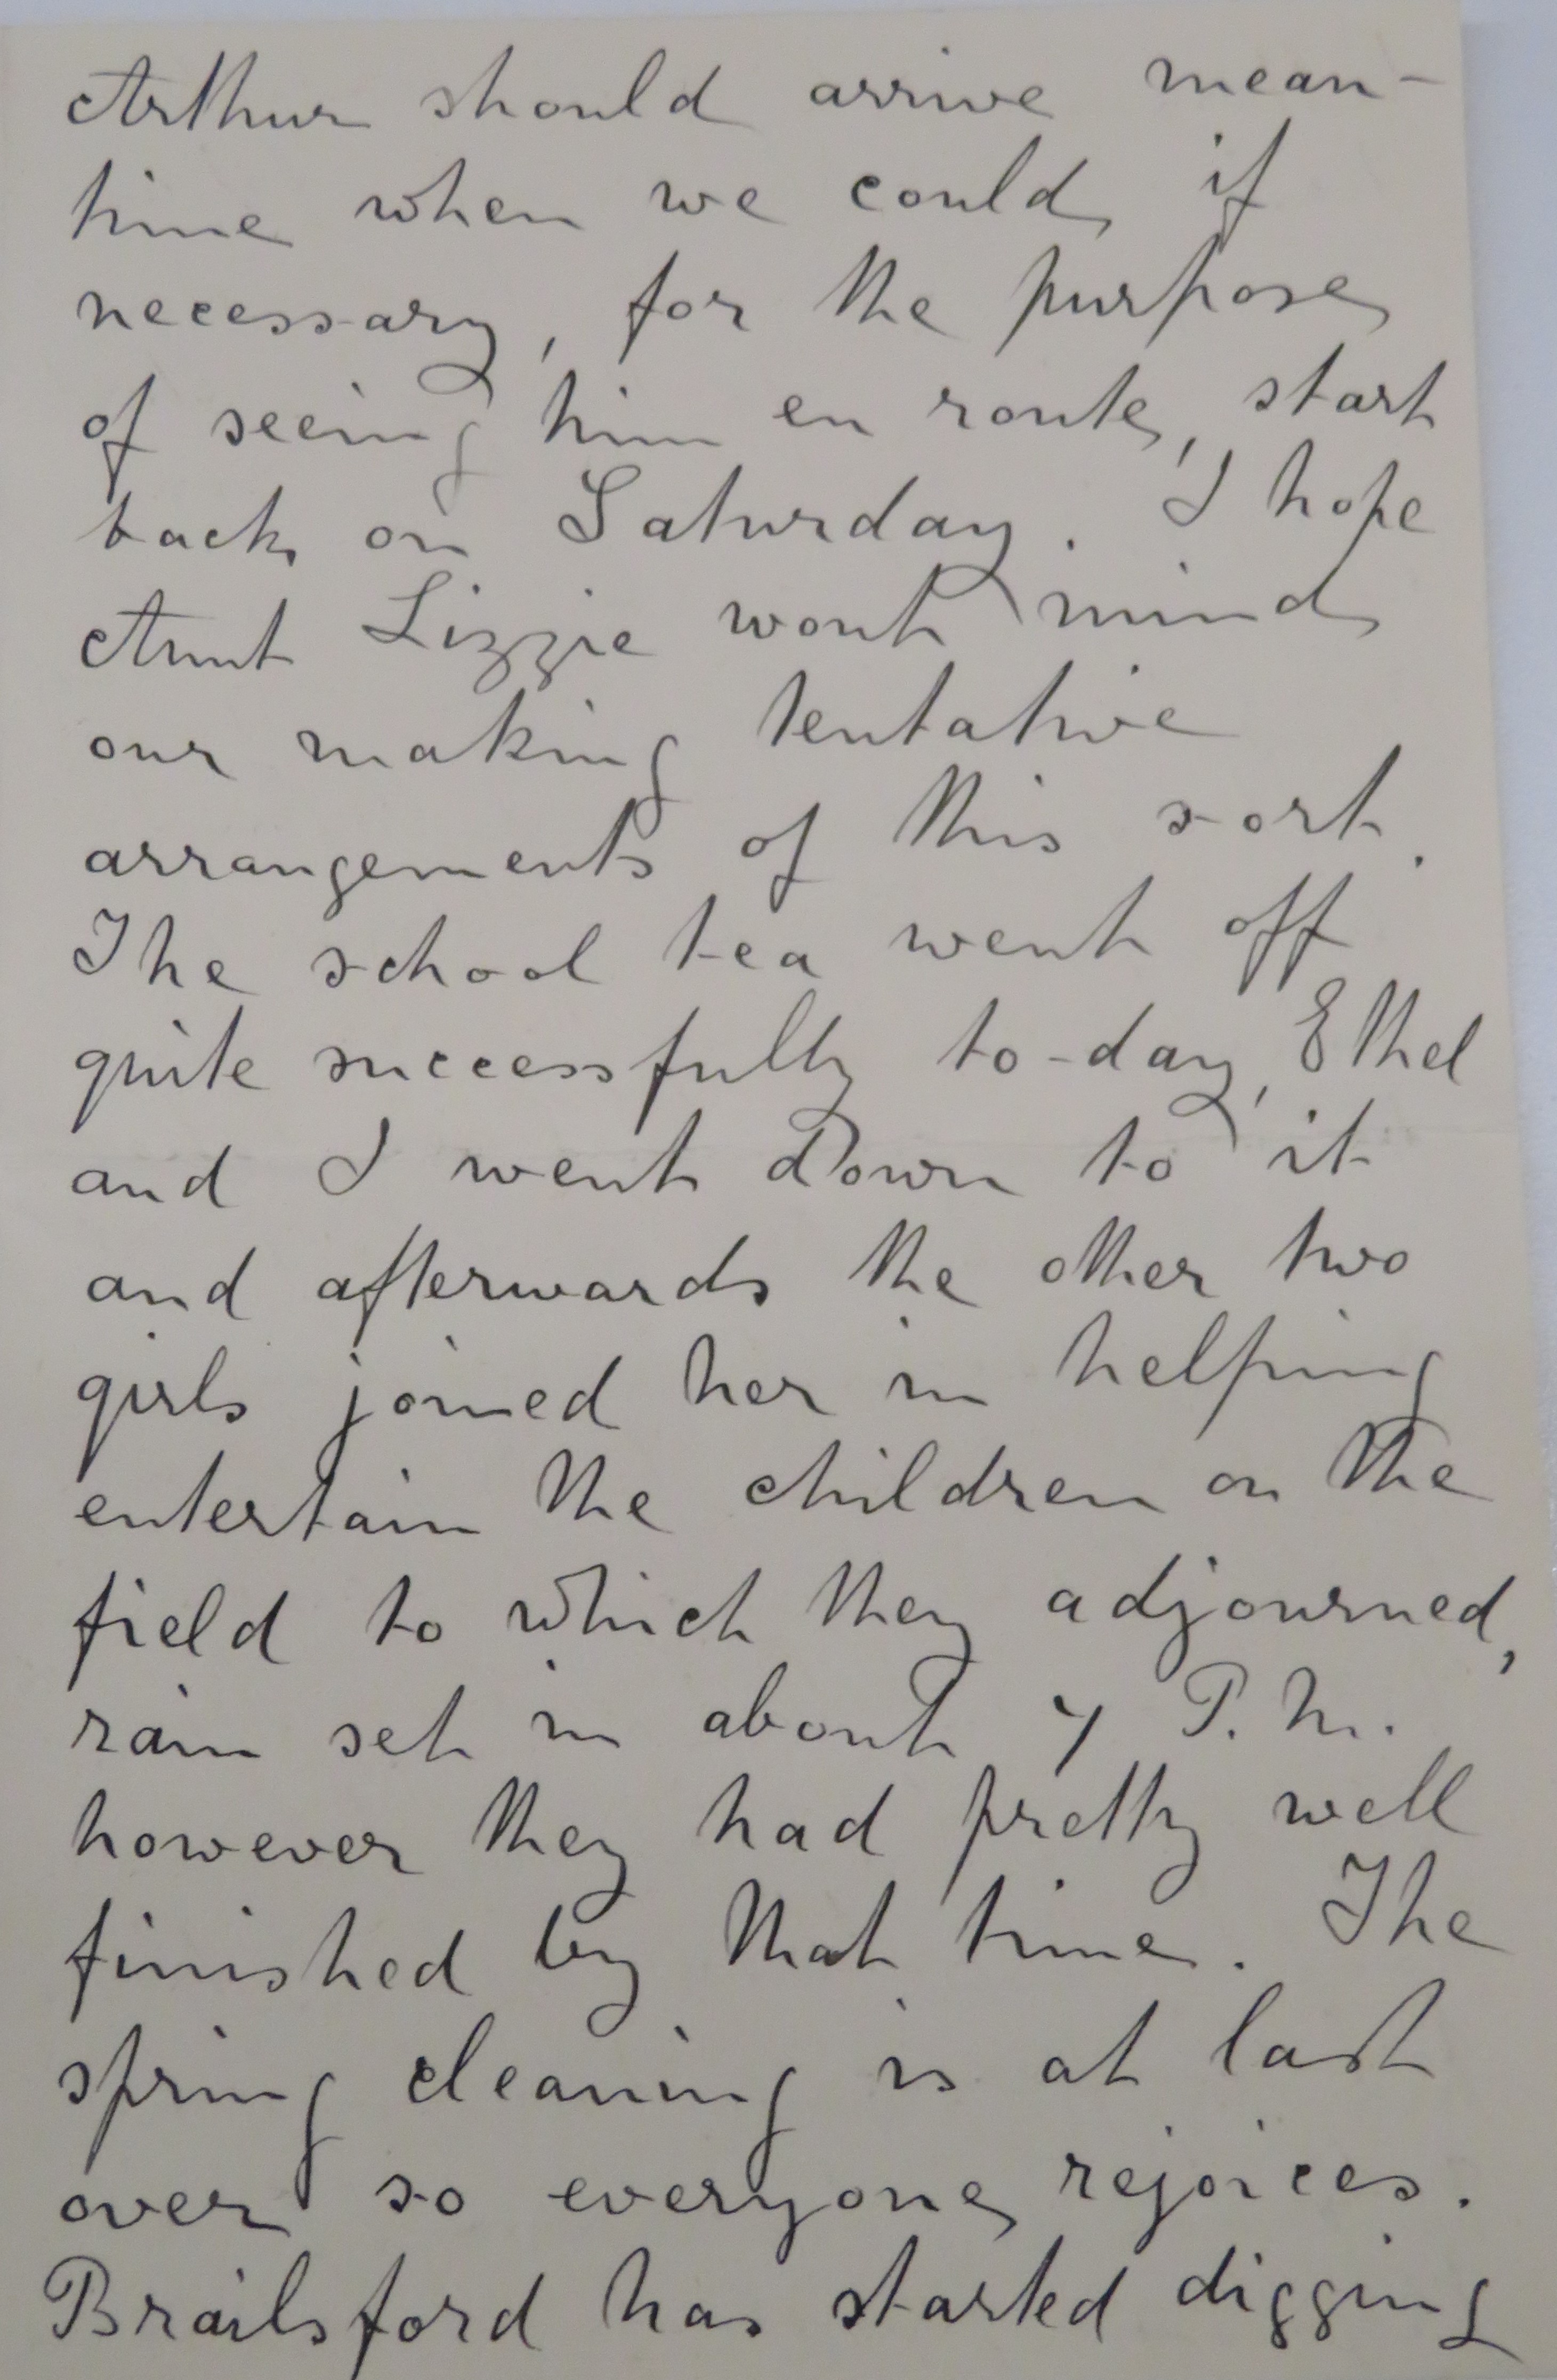 Arthur should arrive mean-
time when we could, if
necessary, for the purpose
of seeing him en route, start
back on Saturday. I hope
Aunt Lizzie wont mind
our making tentative
arrangements of this sort.
The school tea went off
quite successfully to-day, Ethel
and I went down to it
and afterwards the other two
girls joined her in helping
entertain the children on the
field to which they adjourned,
rain set in about 7 P.M.
however they had pretty well
finished by that time. The
spring cleaning is at last
over so everyone rejoices.
Brailsford has started digging